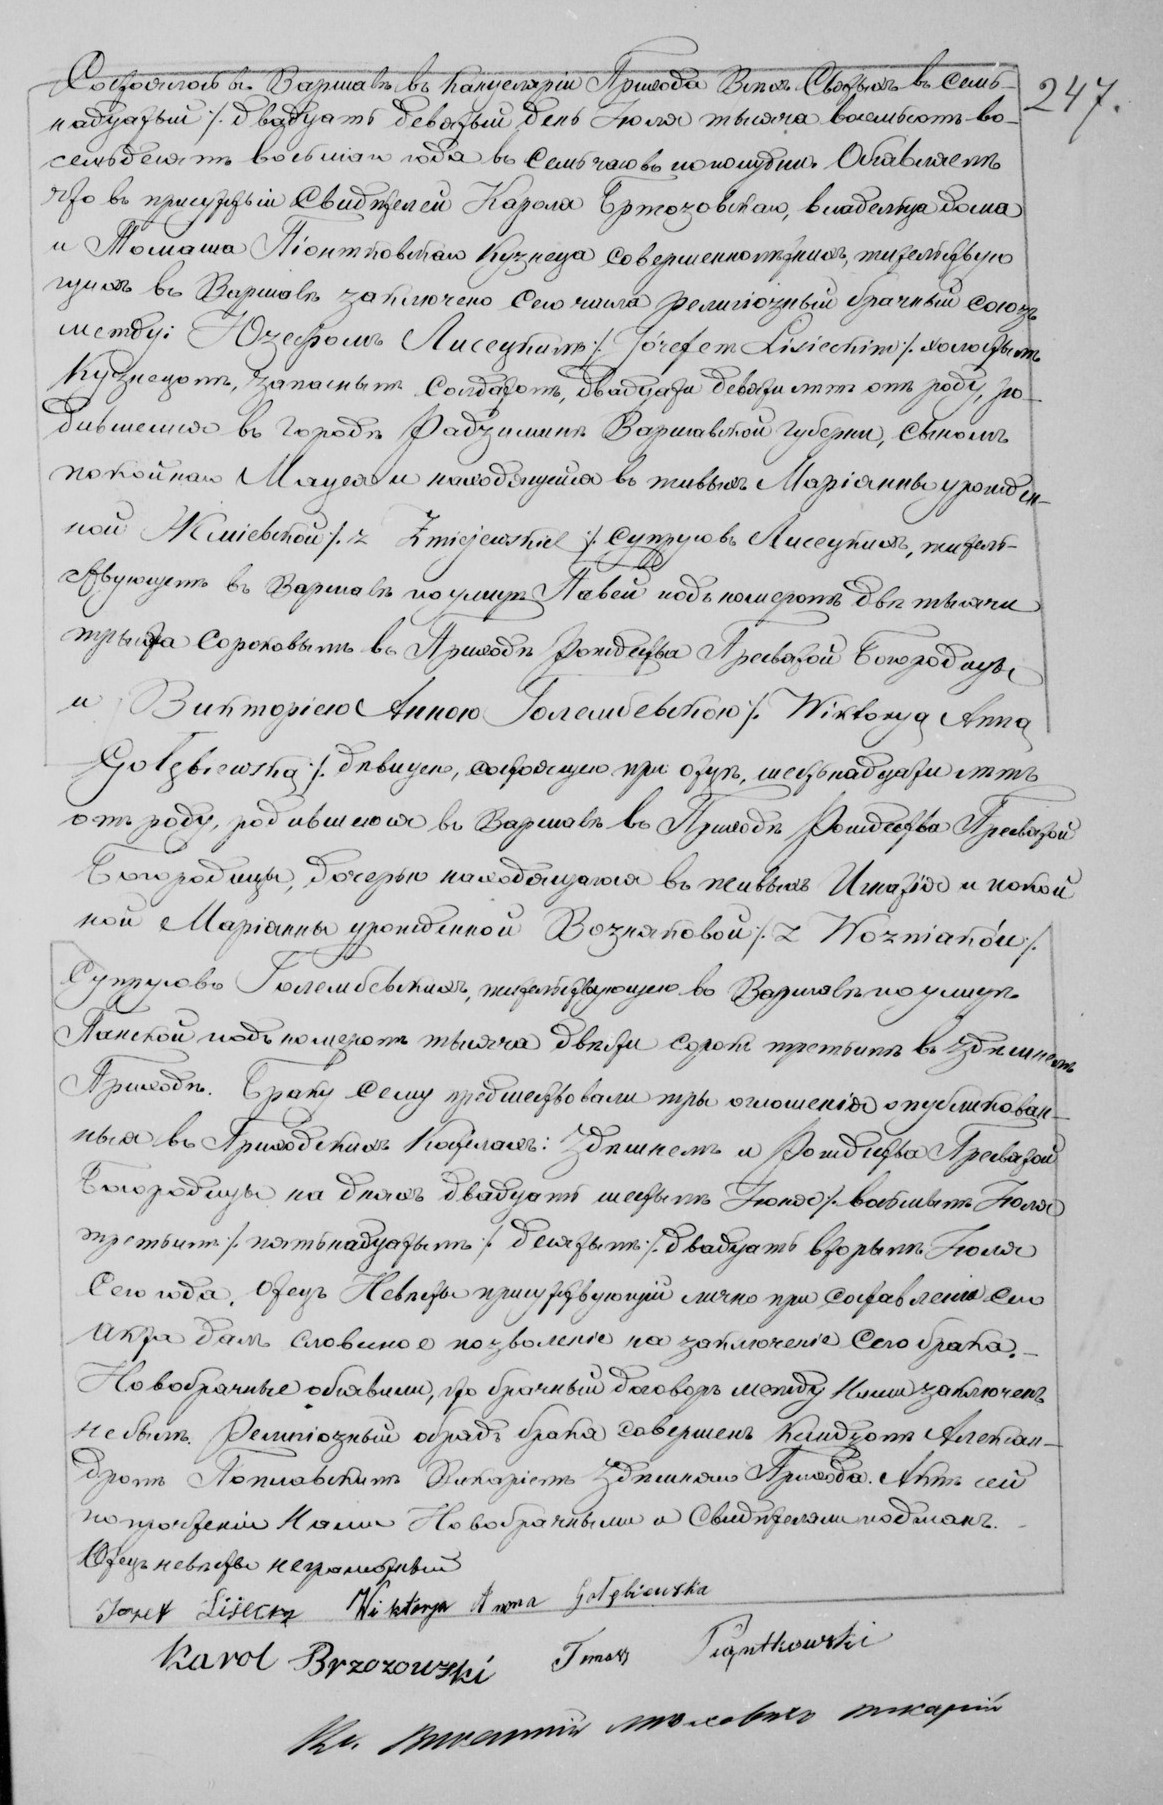 Состоялось въ Варшавѣ въ Канцеляріи Прихода Всѣхъ Святыхъ въ семь-
надцатый /: двадцать девятый день Іюля тысяча восемьсотъ во-
семьдесятъ восьмаго года въ семь часовъ пополудни. Объявляемъ
что въ присутствіи Свидѣтелей Кароля Бржозовскаго, владельца дома
и Томаша Піонтковскаго Кузнеца совершеннолѣтнихъ, жительствую
щихъ въ Варшавѣ заключено сего числа религіозный брачный союзъ
между: Юзефомъ Лисецкимъ /: Józefem Lisieckim /: холостымъ
Кузнецомъ, запаснымъ солдатомъ, двадцати девяти лѣтъ отъ роду, ро-
дившемся въ городѣ Радзиминѣ Варшавской губерніи, сыномъ
покойнаго Мацея и находящейся въ живыхъ Маріанны урожден-
ной Жміевской /: z Żmiejewskich /: супруговъ Лисецкихъ, житель-
ствующемъ въ Варшавѣ по улицѣ Павей подъ номеромъ двѣ тысячи
триста сороковымъ въ Приходѣ Рождества Пресвятой Богородицы
и Викторіею Анною Голембевскою /: Wiktoryą Anną
Gołębiewską /: дѣвицею, состоящею при отцѣ, шестьнадцати лѣтъ
отъ роду, родившеюся въ Варшавѣ въ Приходѣ Рождества Пресвятой
Богородицы, дочерью находящагося въ живыхъ Игнатія и покой
ной Маріанны урожденной Возняковой /: z Woźniaków /:
Супруговъ Голембевскихъ, жительствующею въ Варшавѣ по улицѣ
Панской подъ номеромъ тысяча двѣсти сорокъ третьимъ въ здѣшнемъ
Приходѣ. Браку сему предшествовали три оглошенія опубликован-
ныя въ Приходскихъ Костелахъ: Здѣшнемъ и Рождества Пресвятой
Богородицы на дняхъ двадцать шестымъ Іюня /: восьмымъ Іюля
третьимъ /: пятьнадцатымъ /: десятымъ /: двадцать вторымъ Іюля
Сего года. Отецъ Невѣсты присутствующій лично при составленіи сего
Акта далъ словесное позволеніе на заключеніе сего брака. —
Новобрачные объявили, что брачный договоръ между ними заключенъ
не былъ. Религіозный обрядъ брака совершенъ Ксендзомъ Алексан-
дромъ Поплавскимъ Викаріемъ Здѣшняго Прихода. Актъ сей
по прочтеніи Нами Новобрачными и Свидѣтелями подписанъ. -
Отецъ невѣсты неграмотный
Józef Lisiecki Wiktorja Anna Gołębiewska
Karol Brzozowski Tomasz Piątkowski
Кс. викарій
247.